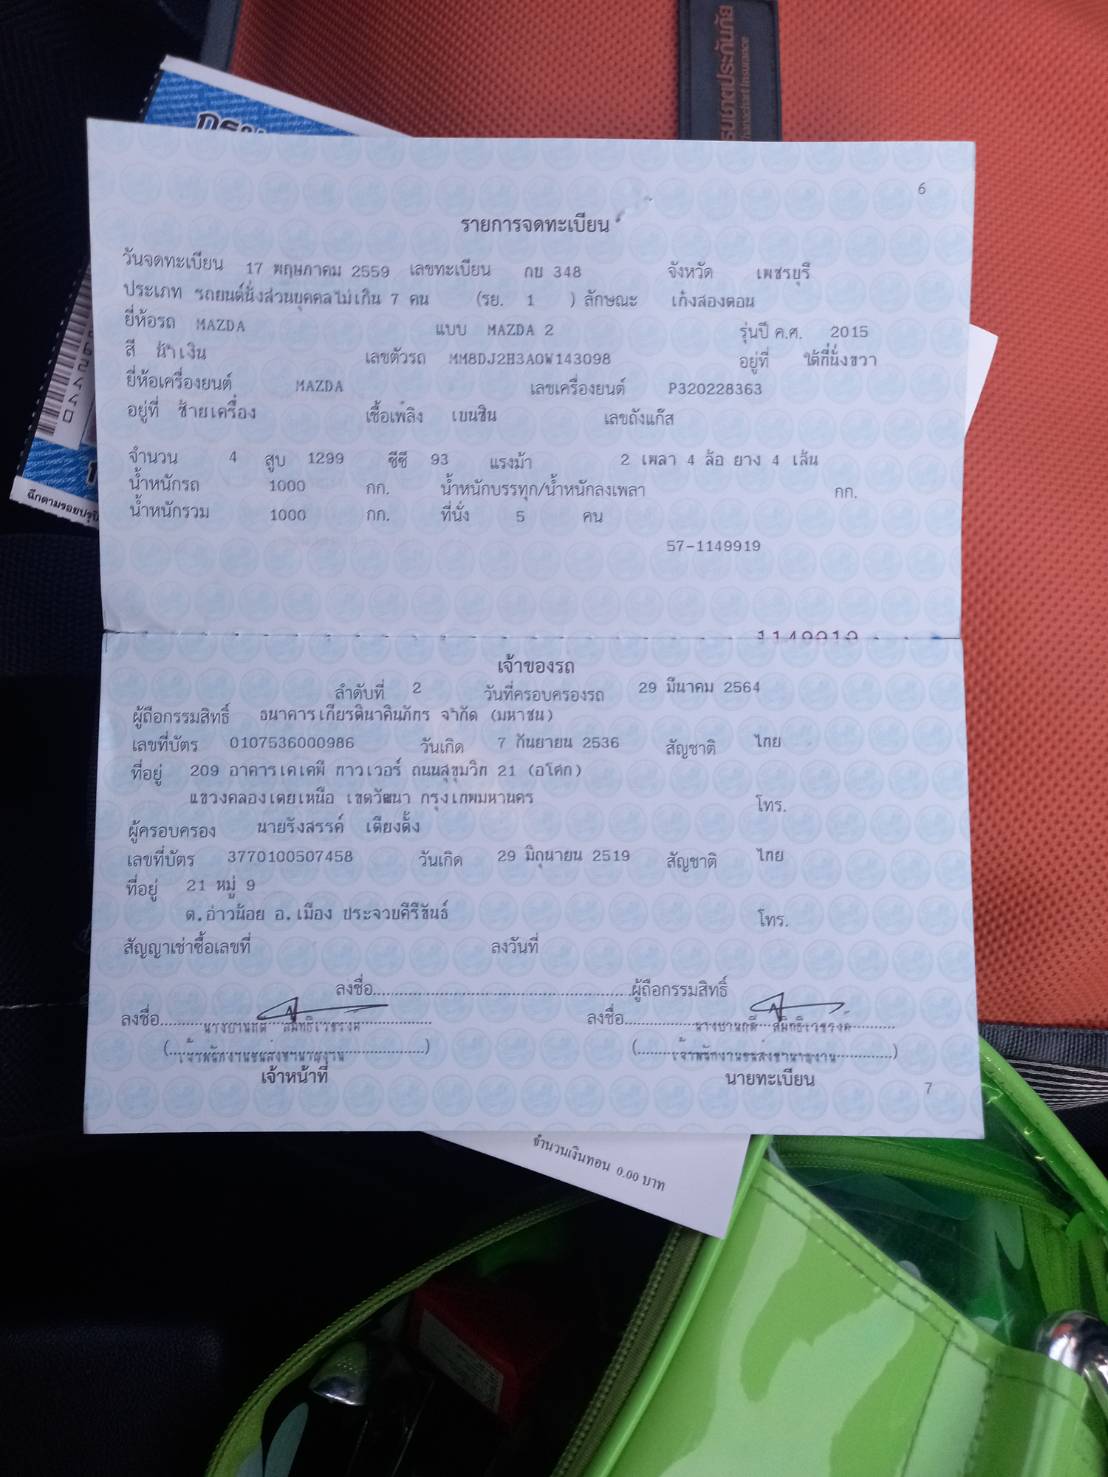 ธนชาตประกันภัย
Thanachart Insurance
6
รายการจดทะเบียน
วันจดทะเบียน 17 พฤษภาคม 2559 เลขทะเบียน กบ 348 จังหวัด เพชรบุรี
ประเภท รถยนต์นั่งส่วนบุคคลไม่เกิน 7 คน (รย. 1 ) ลักษณะ เก๋งสองตอน
ยี่ห้อรถ MAZDA แบบ MAZDA 2 รุ่นปี ค.ศ. 2015
สี น้ำเงิน เลขตัวรถ MM8DJ2H3A0W143098 อยู่ที่ ใต้ที่นั่งขวา
ยี่ห้อเครื่องยนต์ MAZDA เลขเครื่องยนต์ P320228363
อยู่ที่ ซ้ายเครื่อง เชื้อเพลิง เบนซิน เลขถังแก๊ส
จำนวน 4 สูบ 1299 ซีซี 93 แรงม้า 2 เพลา 4 ล้อ ยาง 4 เส้น
น้ำหนักรถ 1000 กก. น้ำหนักบรรทุก/น้ำหนักลงเพลา กก.
น้ำหนักรวม 1000 กก. ที่นั่ง 5 คน
57-1149919
1149919
เจ้าของรถ
ลำดับที่ 2 วันที่ครอบครองรถ 29 มีนาคม 2564
ผู้ถือกรรมสิทธิ์ ธนาคารเกียรตินาคินภัทร จำกัด (มหาชน)
เลขที่บัตร 0107536000986 วันเกิด 7 กันยายน 2536 สัญชาติ ไทย
ที่อยู่ 209 อาคารเคเคพี ทาวเวอร์ ถนนสุขุมวิท 21 (อโศก)
แขวงคลองเตยเหนือ เขตวัฒนา กรุงเทพมหานคร โทร.
ผู้ครอบครอง นายรังสรรค์ เตียงตั้ง
เลขที่บัตร 3770100507458 วันเกิด 29 มิถุนายน 2519 สัญชาติ ไทย
ที่อยู่ 21 หมู่ 9
ต.อ่าวน้อย อ.เมือง ประจวบคีรีขันธ์ โทร.
สัญญาเช่าซื้อเลขที่ ลงวันที่
ลงชื่อ ผู้ถือกรรมสิทธิ์
ลงชื่อ ลงชื่อ
เจ้าพนักงานขนส่งชำนาญงาน เจ้าพนักงานขนส่งชำนาญงาน
เจ้าหน้าที่ นายทะเบียน
7
จำนวนเงินทอน 0.00 บาท